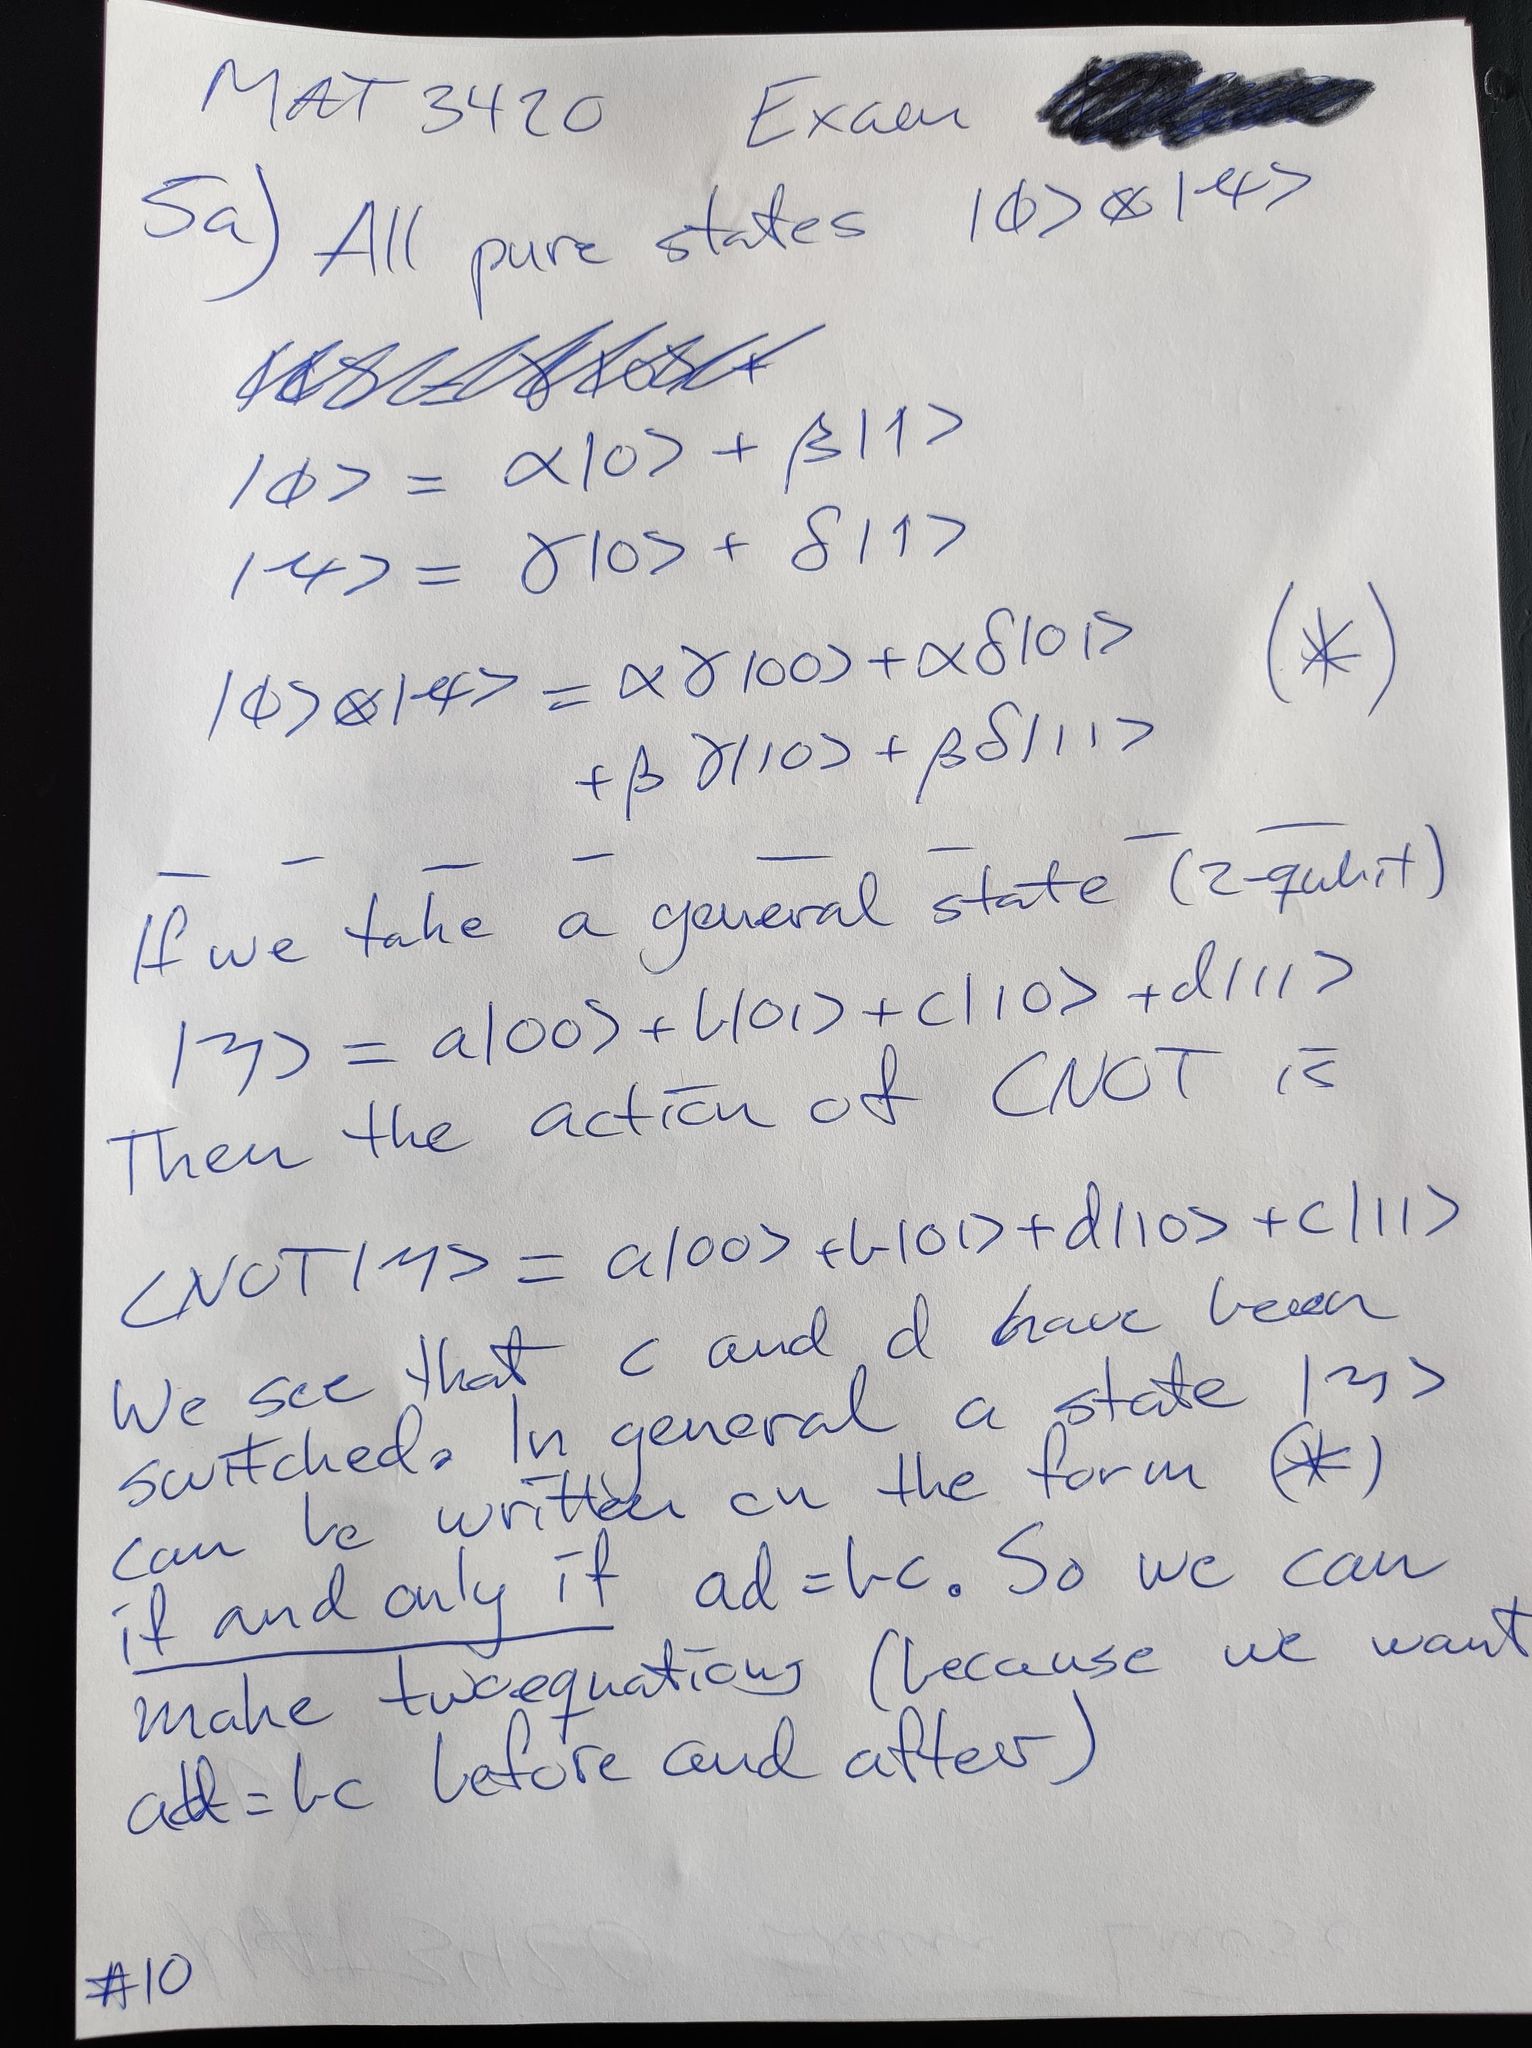 MAT 3420 Exam
5a) All pure states |ϕ>⊗|ψ>
|ϕ> = α|0> + β|1>
|ψ> = γ|0> + δ|1>
|ϕ>⊗|ψ> = αγ|00> + αδ|01> (*)
+ βγ|10> + βδ|11>
If we take a general state (2-qubit)
|η> = a|00> + b|01> + c|10> + d|11>
Then the action of CNOT is
CNOT|η> = a|00> + b|01> + d|10> + c|11>
We see that c and d have been
switched. In general a state |η>
can be written on the form (*)
if and only if ad = bc. So we can
make two equations (because we want
ad = bc before and after)
#10